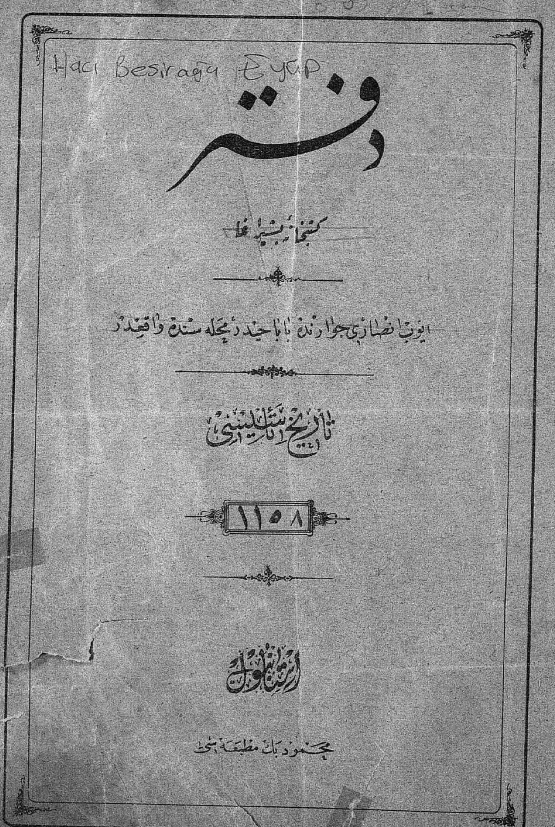 Hacı Beşirağa Eyüp
دفتر
كتبخانهٔ بشير اغا
ايوب انصاری جوارنده بابا حيدر محله سنده واقعدر
تاريخ تأسيسی
١١٥٨
استانبول
محمود بك مطبعه سی